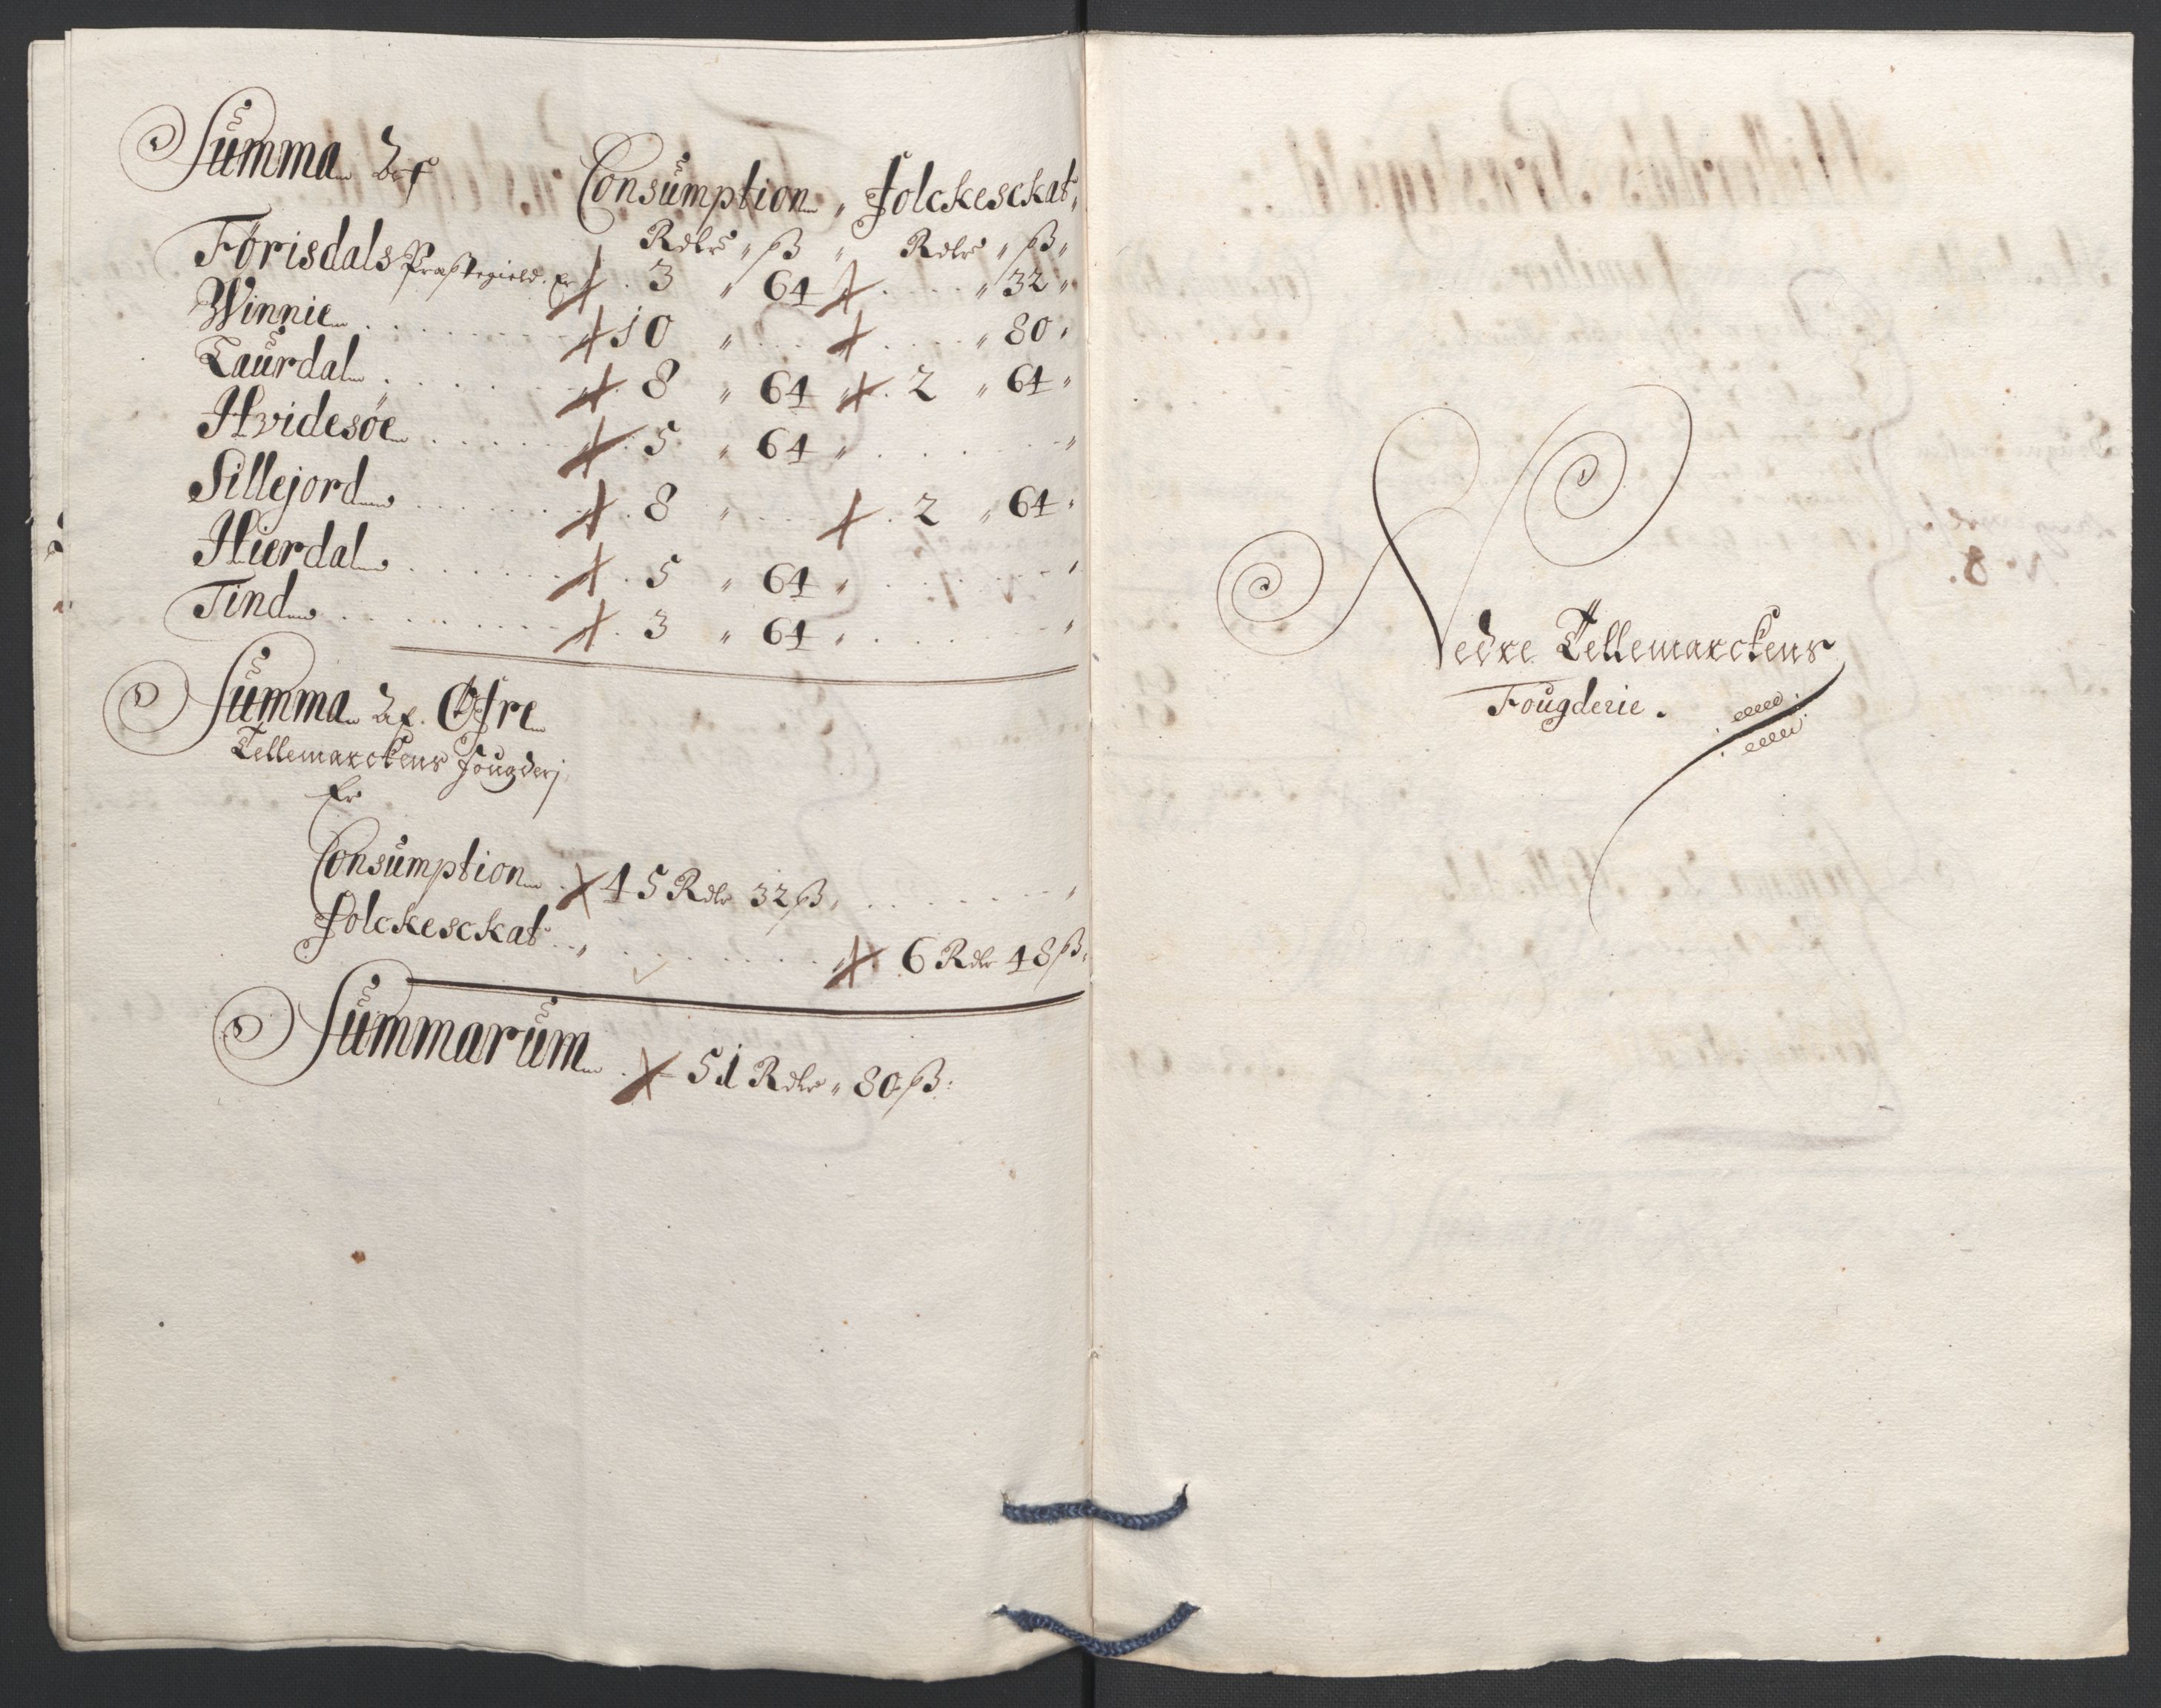 Summa Af
Consumption, Folckesckat,
Rdlr " ß " Rdlr " ß "
Forisdals Præstegield. Er . 3 " 64 . . . . " 32 "
Winnie . . . . . . . . 10 " . . . . . . . " 80 "
Laurdal . . . . . . . 8 " 64 " . 2 " 64 "
Hvidesøe . . . . . . 5 " 64 " . . . . . . "
Sillejord . . . . . . . 8 " . . . . 2 " 64 "
Hierdal . . . . . . . 5 " 64 " . . . . . . "
Tind . . . . . . . . . 3 " 64 " . . . . . . "
Summa Af. Øfre
Tellemarckens Fougderj
Er
Consumption . 45 Rdlr 32 ß, . . . . . . "
Folckesckat . . " . . . . . . . . 6 Rdlr 48 ß:
Summarum . 51 Rdlr " 80 ß:
Nedre Tellemarckens
Fougderie.